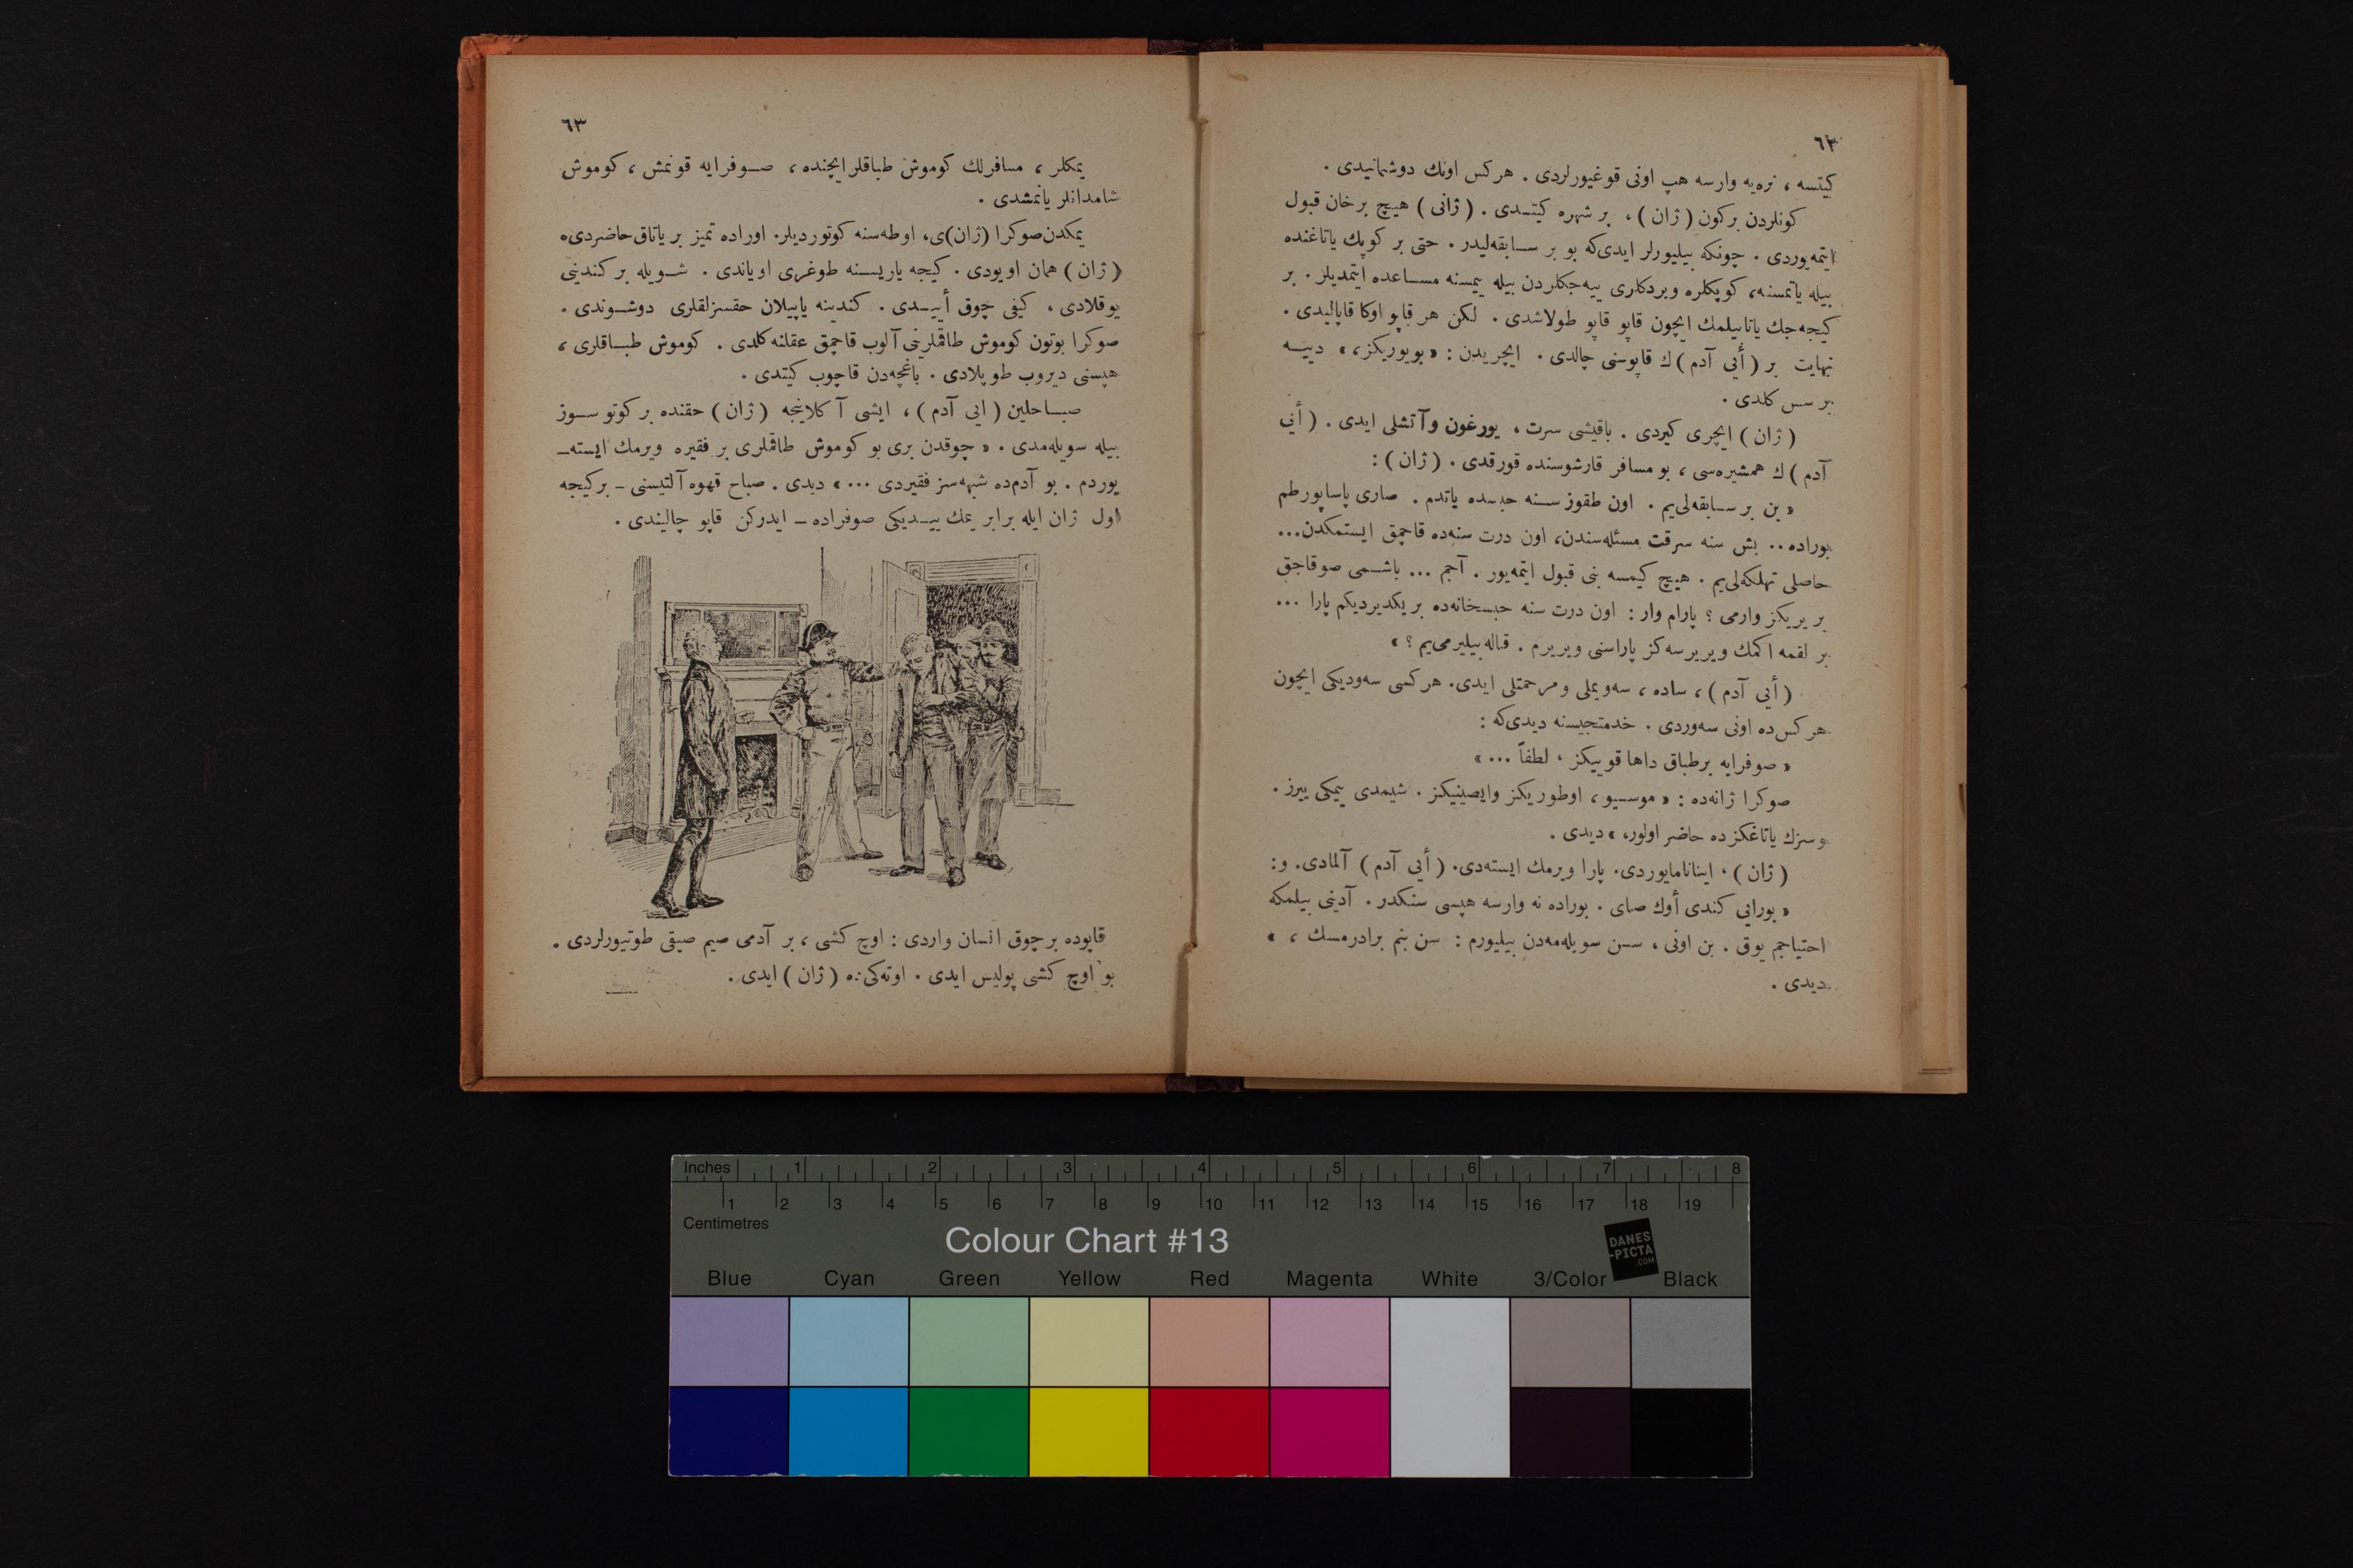 ٦٢
كیتسه ، نره‌یه وارسه هپ اونی قوغیورلردی . هركس اونك دوشمانیدی .
كونلردن بركون ( ژان ) ، بر شهره كیتـدی . ( ژانی ) هیچ برخان قبول
ایتمه‌یوردی . چونكه بیلیورلر ایدی‌كه بو بر سـابقه‌لیدر . حتی بر كوپك یاتاغنده
بیله یاتمسنه، كوپكلره ویردكلری ییه‌جكلردن بیله ییمسنه مسـاعده ایتمدیلر . بر
كیجه‌جك یاتابیلمك ایچون قاپو قاپو طولاشدی . لكن هر قاپو اوكا قاپالیدی .
نهایت بر ( أیی آدم ) ك قاپوسنی چالدی . ایچریدن : « بویوریكز ، » دییـه
بر سس كلدی .
( ژان ) ایچری كیردی . باقیشی سرت ، یورغون وآتشلی ایدی . ( أیی
آدم ) ك همشیره‌سی ، بو مسافر قارشوسنده قورقدی . ( ژان ) :
« بن بر سـابقه‌لی‌یم . اون طقوز سـنه حبسده یاتدم . صاری پاساپورطم
بوراده .. بش سنه سرقت مسئله‌سندن، اون درت سنه‌ده قاچمق ایستمكدن...
حاصلی تهلكه‌لی‌یم . هیچ كیمسه بنی قبول ایتمه‌یور . آجم ... باشـمی صوقاجق
بر یریكز وارمی ؟ پارام وار : اون درت سنه حبسخانه‌ده بریكدیردیكم پارا ...
بر لقمه اكمك ویریرسه‌كز پاراسنی ویریرم . قاله‌بیلیرمی‌یم ؟ »
( أیی آدم ) ، ساده ، سه‌ویملی ومرحمتلی ایدی. هركسی سه‌ودیكی ایچون
هركس‌ده اونی سه‌وردی . خدمتجیسنه دیدی‌كه :
« صوفرایه برطباق داها قوییكز ، لطفاً ... »
صوكرا ژانه‌ده : « موسـیو ، اوطوریكز وایصینیكز . شیمدی یمكی ییرز .
وسزك یاتاغكزده حاضر اولور، » دیدی .
( ژان ) ، اینانامایوردی. پارا ویرمك ایسته‌دی. ( أیی آدم ) آلمادی. و :
« بورایی كندی أوك صای . بوراده نه وارسه هپسی سنكدر . آدینی بیلمكه
احتیاجم یوق . بن اونی ، سـن سویله‌مه‌دن بیلیورم : سن بنم برادرمسك ، »
دیدی .
٦٣
یمكلر ، مسافرلك كوموش طباقلر ایچنده ، صـوفرایه قونمش ، كوموش
شامدانلر یانمشدی .
یمكدن‌صوكرا (ژان)ی، اوطه‌سنه كوتوردیلر. اوراده تمیز بر یاتاق‌حاضردی.
( ژان ) همان اویودی . كیجه یاریسـنه طوغری اویاندی . شـویله بر كندینی
یوقلادی ، كیفی چوق أییـدی . كندینه یاپیلان حقسزلقلری دوشـوندی .
صوكرا بوتون كوموش طاقملرینی آلوب قاچمق عقلنه كلدی . كوموش طبـاقلری ،
هپسنی دیروب طوپلادی . باغچه‌دن قاچوب كیتدی .
صبـاحلین ( ایی آدم ) ، ایشی آكلاینجه ( ژان ) حقنده بر كوتو سـوز
بیله سویله‌مدی . « چوقدن بری بو كوموش طاقملری بر فقیره ویرمك ایسته‌ـ
یوردم . بو آدم‌ده شبهه‌سز فقیردی ... » دیدی . صباح قهوه آلتیسنی ـ بركیجه
اول ژان ایله برابر یمك ییـدیكی صوفراده ـ ایدركن قاپو چالیندی .
قاپوده برچوق انسان واردی : اوچ كشی ، بر آدمی صیم صیقی طوتیورلردی .
بو اوچ كشی پولیس ایدی . اوته‌كی‌ده ( ژان ) ایدی .
Inches 1 2 3 4 5 6 7 8
1 2 3 4 5 6 7 8 9 10 11 12 13 14 15 16 17 18 19
Centimetres
Colour Chart #13
DANES
-PICTA
.COM
Blue Cyan Green Yellow Red Magenta White 3/Color Black